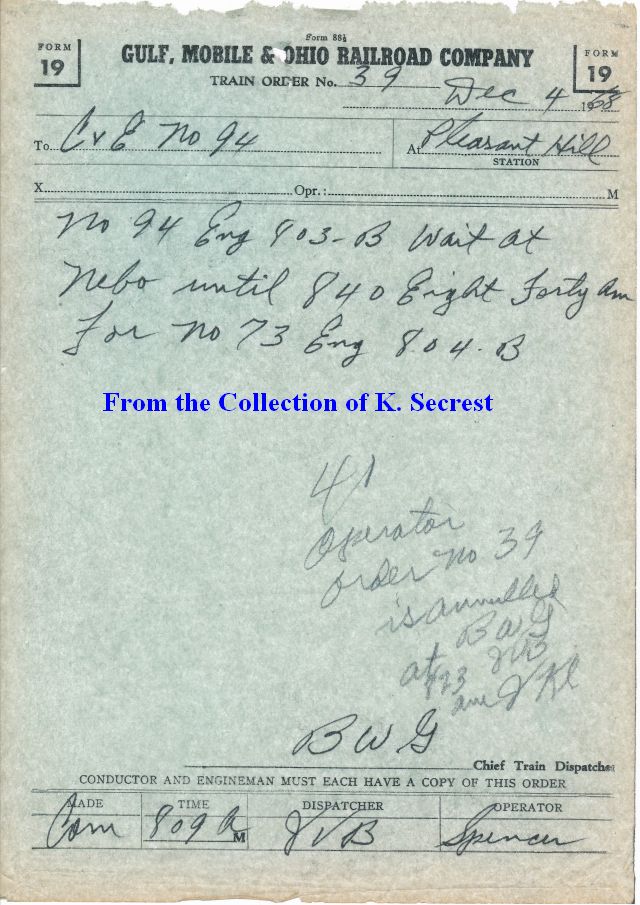 Form 88½
FORM
19
GULF, MOBILE & OHIO RAILROAD COMPANY
FORM
19
TRAIN ORDER No. 39
Dec 4 1968
To C&E No 94
At Pleasant Hill
STATION
X Opr.: M
No 94 Eng 803-B Wait at
Nebo until 840 Eight Forty am
For No 73 Eng 804-B
From the Collection of K. Secrest
41
Operator
order no 39
is annulled
BWG
at JVB
823
am
BWG
Chief Train Dispatcher
CONDUCTOR AND ENGINEMAN MUST EACH HAVE A COPY OF THIS ORDER
MADE TIME DISPATCHER OPERATOR
Com 809 A M JVB Spencer